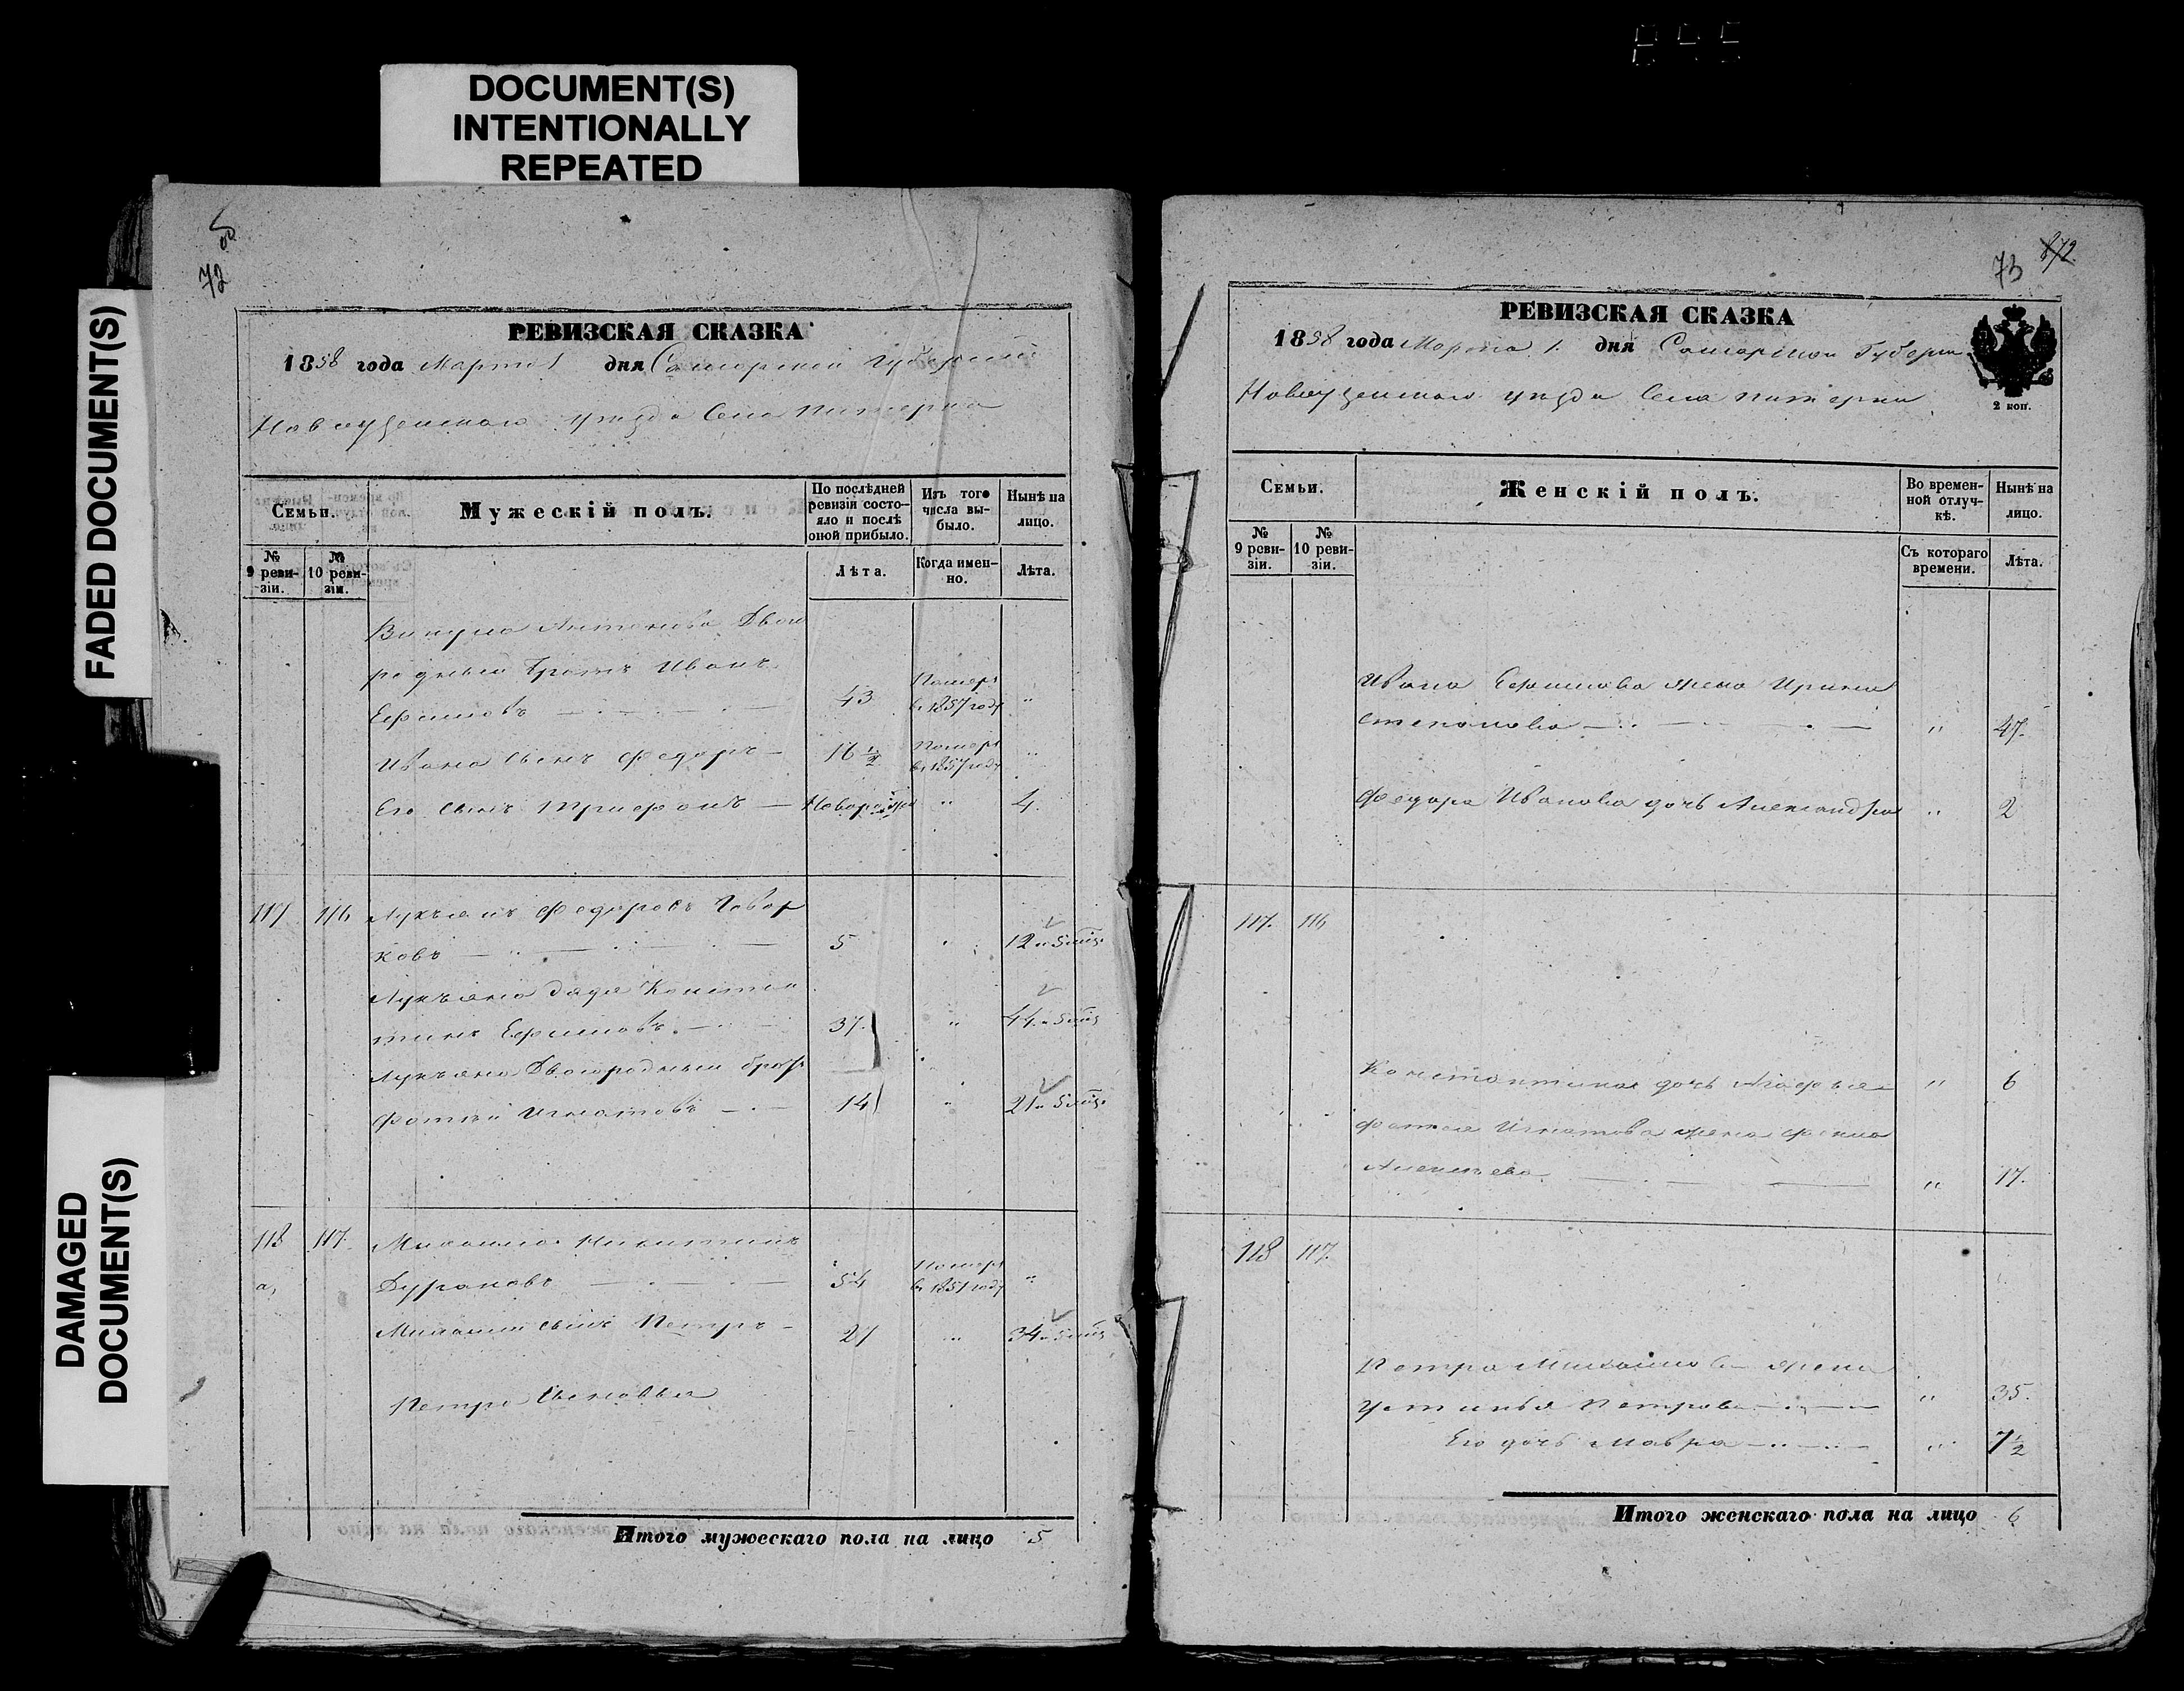 DOCUMENT(S)
INTENTIONALLY
REPEATED
FADED DOCUMENT(S)
DAMAGED
DOCUMENT(S)
72
РЕВИЗСКАЯ СКАЗКА
1858 года Марта 1 дня Самарской Губернии
Новоузенскаго уезда Села Питерка
Семьи.
Мужескій полъ.
По послѣдней ревизіи состояло и послѣ оной прибыло.
Изъ того числа выбыло.
Нынѣ на лицо.
№ 9 ревизіи.
№ 10 ревизіи.
Лѣта.
Когда именно.
Лѣта.
Викула Антонова Двою
родный братъ Иванъ
Ефимовъ 43 Померъ в 1857 году "
Ивана сынъ Федоръ 16 1/2 Померъ в 1857 году "
Его сынъ Трифонъ Новорожд " 4.
117 116 Лукьянъ Федоровъ Говор
ковъ 5 " 12 и 5 мѣц.
Лукьяна дядя Констан
тинъ Ефимовъ 37. " 44 и 5 мѣц
Лукьяна Двоюродный братъ
Фотѣй Игнатовъ 14 " 21 и 5 мѣц.
118 117. Михаила Никитинъ
а, Дураковъ 54 Померъ в 1851 году "
Михаилы сынъ Петръ 27 " 34 и 5 мѣц
Петра Сыновья
Итого мужескаго пола на лицо 5
73 872
РЕВИЗСКАЯ СКАЗКА
1858 года Марта 1. дня Самарской Губерни
Новоузенскаго уезда Села Питерки
2 коп.
Семьи.
Женскій полъ.
Во временной отлучкѣ.
Нынѣ на лицо.
№ 9 ревизіи.
№ 10 ревизіи.
Съ котораго времени.
Лѣта.
Ивана Ефимова жена Ирина
Степанова " 47.
Федора Иванова дочь Александра " 2
117. 116
Константина дочь Агафья " 6
Фотея Игнатова жена Фекла
Алексѣева " 17.
118 117.
Петра Михайлова жена
Устинья Петрова " 35.
Его дочь Мавра " 7 1/2
Итого женскаго пола на лицо 6